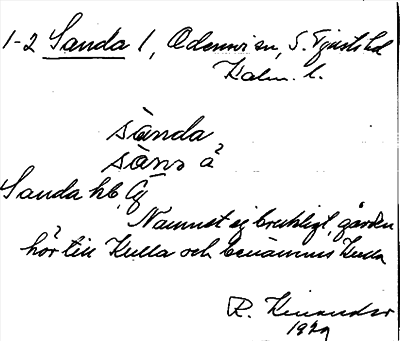 1-2 Sanda 1, Odensvi sn, S. Tjusts hd
Kalm. l.
sànda
sàns å
Sanda hb, Äg
Namnet ej brukligt, gården
hör till Kulla och benämnes Kulla
R. Kinander
1929